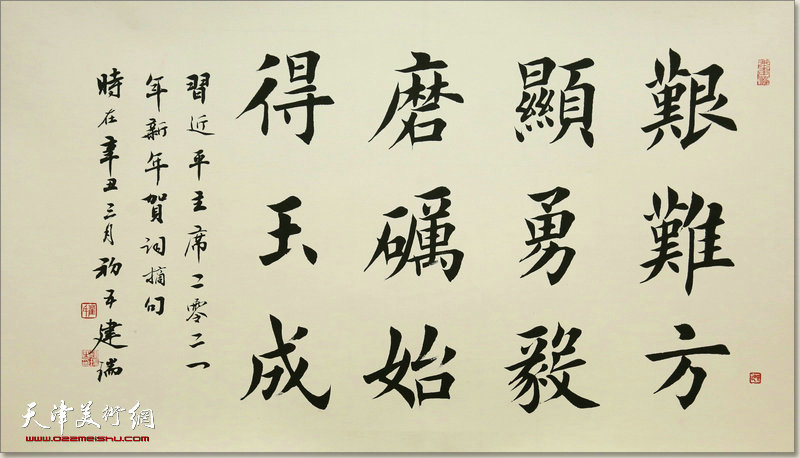 艱難方
顯勇毅
磨礪始
得玉成
習近平主席二零二一
年新年賀詞摘句
時在辛丑三月初五建瑞
天津美術網
www.022meishu.com